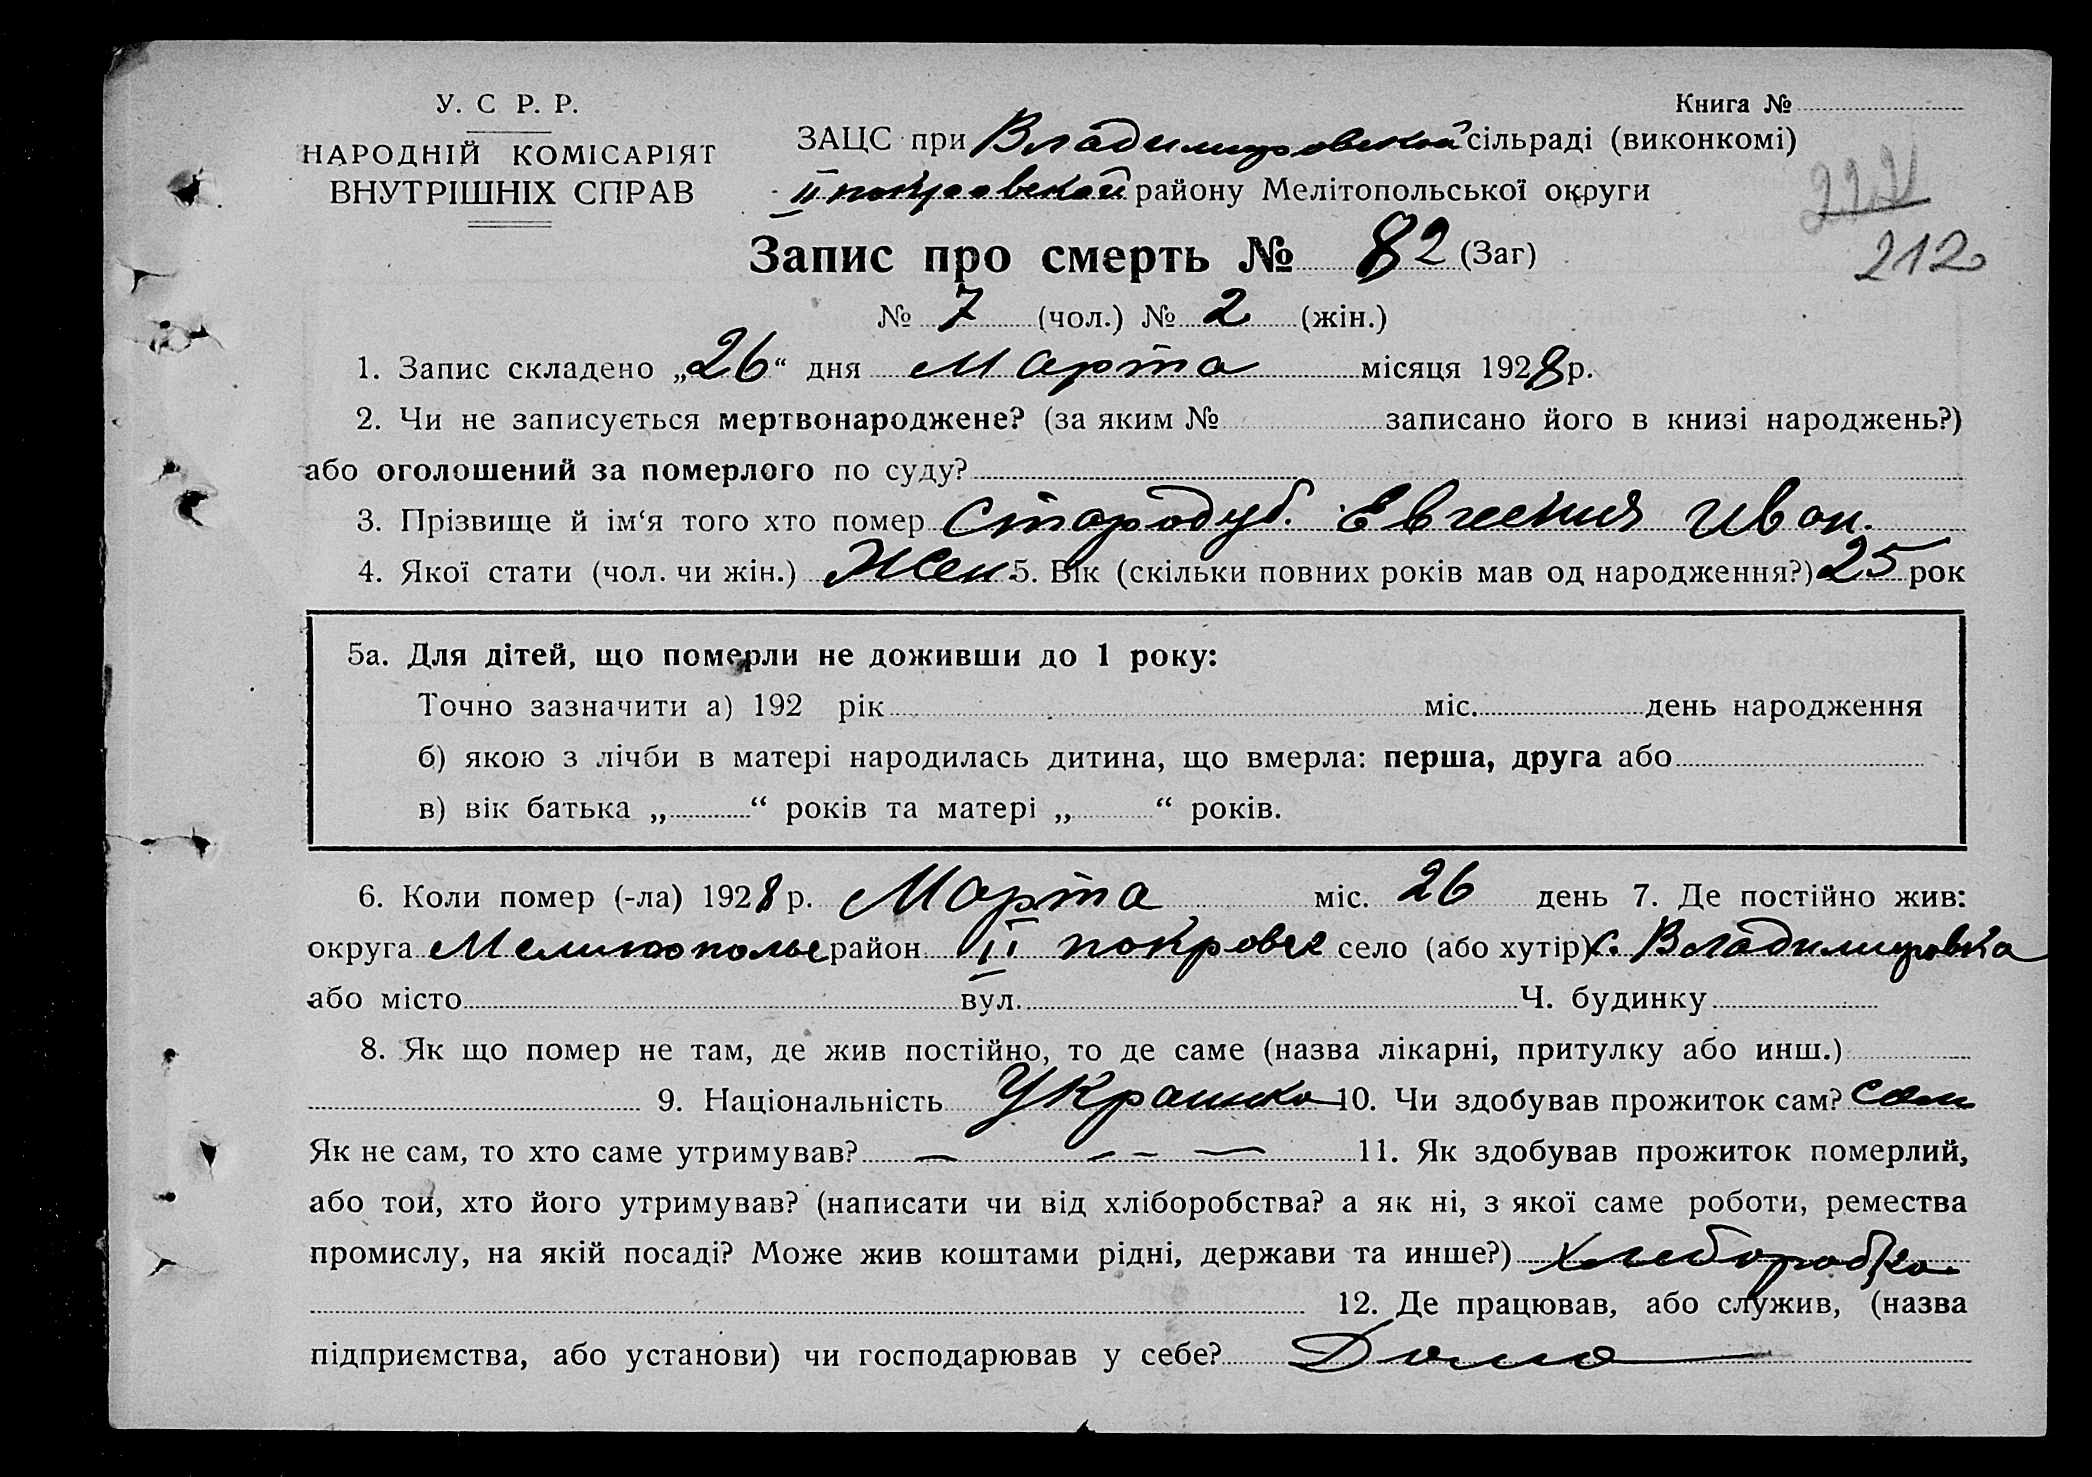 У. С Р. Р.
НАРОДНІЙ КОМІСАРІЯТ
ВНУТРІШНІХ СПРАВ
Книга №
ЗАЦС при Владимировской сільраді (виконкомі)
II покровской району Мелітопольської округи
221
212
Запис про смерть № 82 (Заг)
№ 7 (чол.) № 2 (жін.)
1. Запис складено „26“ дня Марта місяця 1928 р.
2. Чи не записується мертвонароджене? (за яким № записано його в книзі народжень?)
або оголошений за померлого по суду?
3. Прізвище й ім‘я того хто помер Стародуб. Евгения Иван.
4. Якої стати (чол. чи жін.) Жен 5. Вік (скільки повних років мав од народження?) 25 рок
5а. Для дітей, що померли не доживши до 1 року:
Точно зазначити а) 192 рік міс. день народження
б) якою з лічби в матері народилась дитина, що вмерла: перша, друга або
в) вік батька „ “ років та матері „ “ років.
6. Коли помер (-ла) 1928 р. Марта міс. 26 день 7. Де постійно жив:
округа район II покровск село (або хутір) с. Владимировка
або місто вул. Ч. будинку
8. Як що помер не там, де жив постійно, то де саме (назва лікарні, притулку або инш.)
9. Національність Украинка 10. Чи здобував прожиток сам? сам
Як не сам, то хто саме утримував? — — — 11. Як здобував прожиток померлий,
або той, хто його утримував? (написати чи від хліборобства? а як ні, з якої саме роботи, ремества
промислу, на якій посаді? Може жив коштами рідні, держави та инше?) хлеборобка
12. Де працював, або служив, (назва
підприємства, або установи) чи господарював у себе? Дома